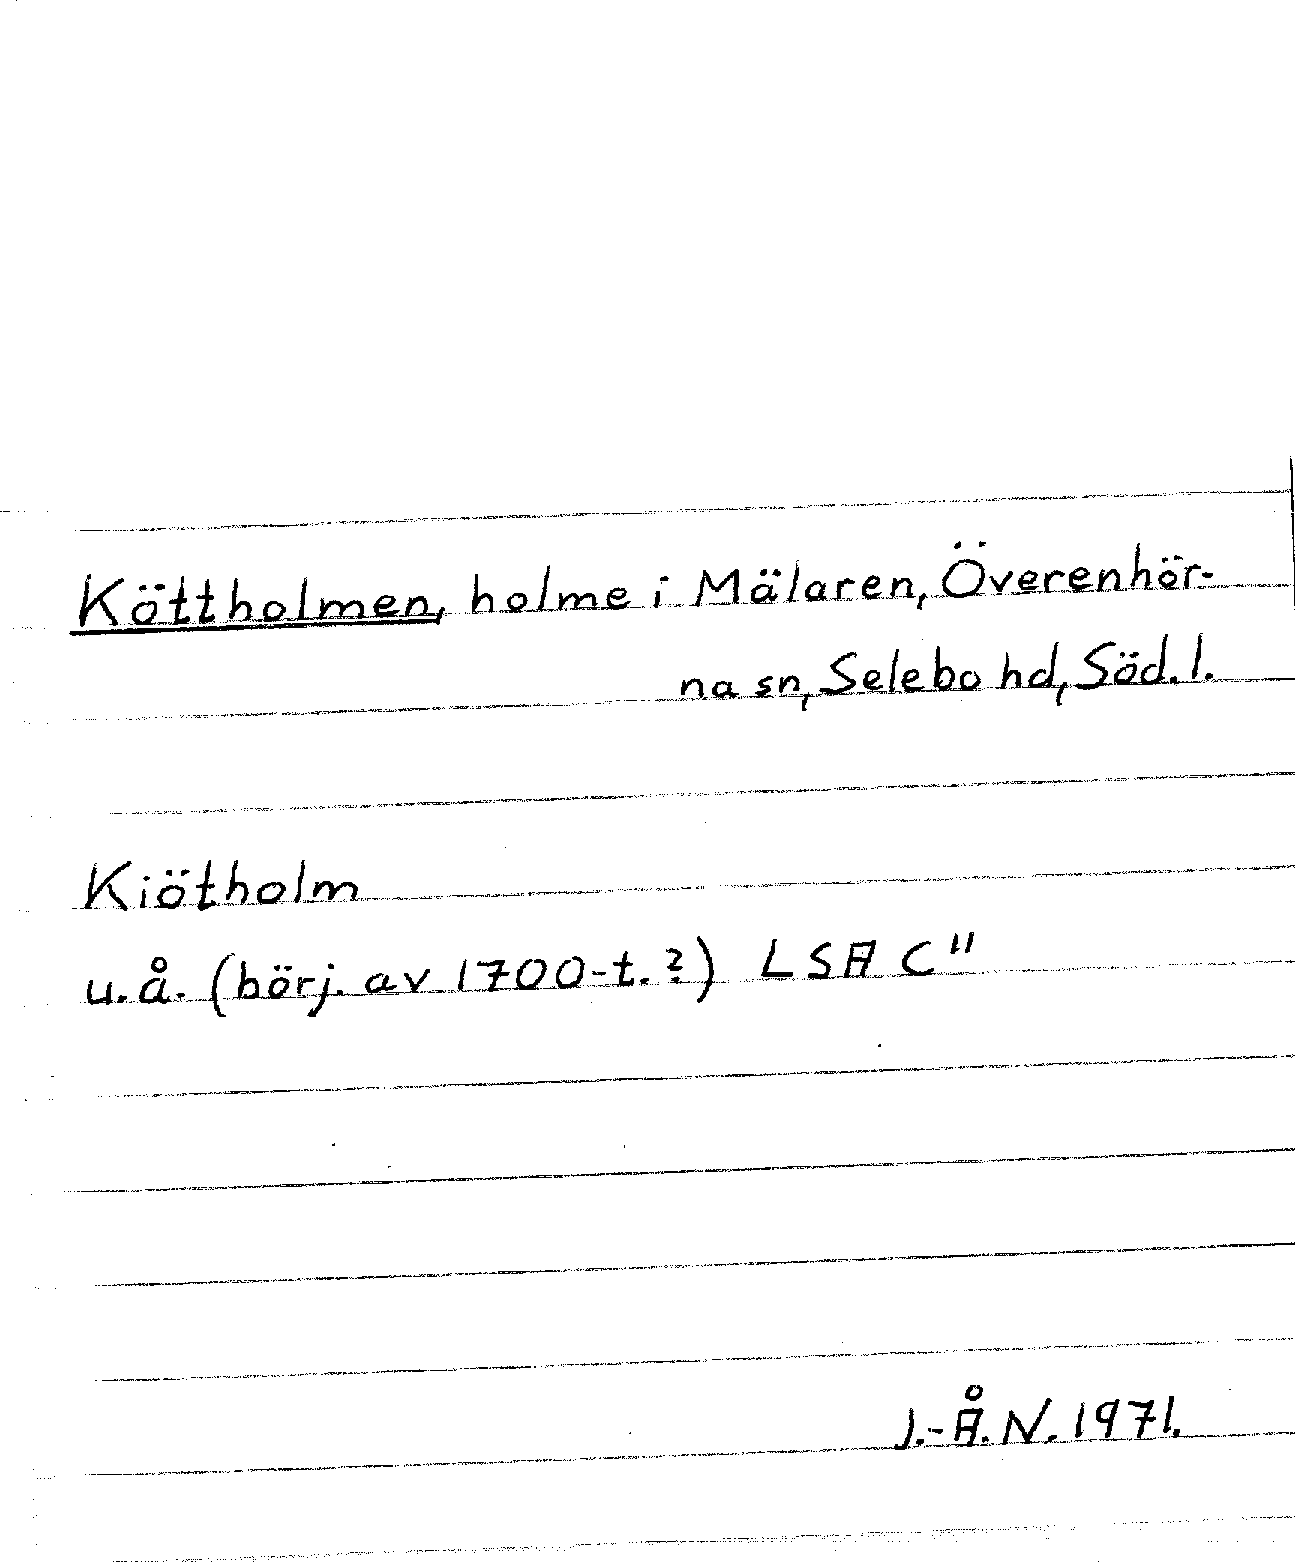 Köttholmen, holme i Mälaren, Överenhör-
na sn, Selebo hd, Söd. l.
Kiötholm
u.å. (börj. av 1700-t.?) LSA C"
J.-Å. N. 1971.